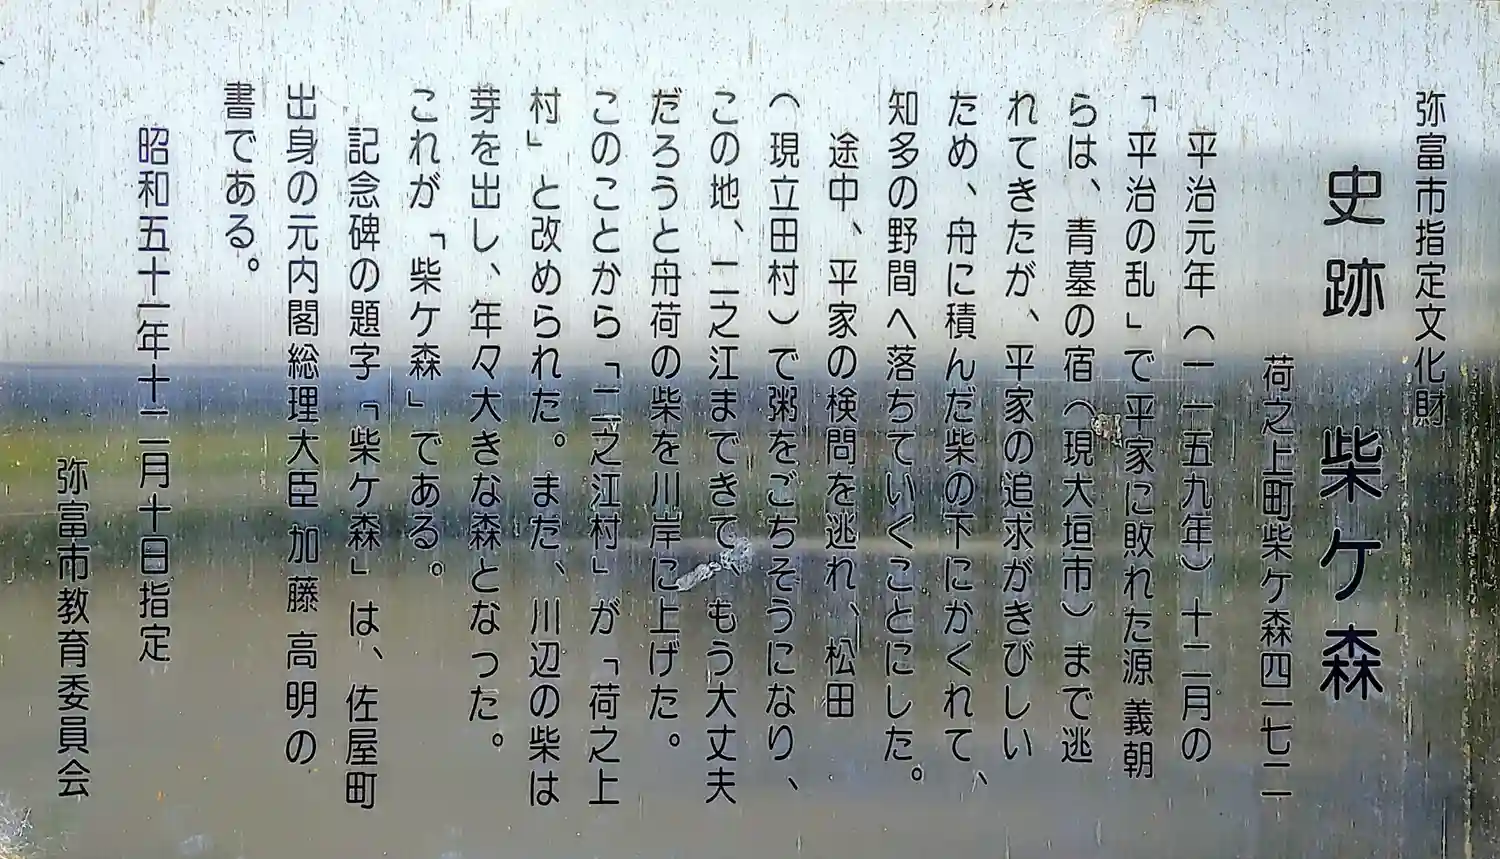 弥富市指定文化財
史跡 柴ケ森
荷之上町柴ケ森四一七二
平治元年(一一五九年)十二月の
「平治の乱」で平家に敗れた源 義朝
らは、青墓の宿(現大垣市)まで逃
れてきたが、平家の追求がきびしい
ため、舟に積んだ柴の下にかくれて、
知多の野間へ落ちていくことにした。
途中、平家の検問を逃れ、松田
(現立田村)で粥をごちそうになり、
この地、二之江まできて、もう大丈夫
だろうと舟荷の柴を川岸に上げた。
このことから「二之江村」が「荷之上
村」と改められた。また、川辺の柴は
芽を出し、年々大きな森となった。
これが「柴ケ森」である。
記念碑の題字「柴ケ森」は、佐屋町
出身の元内閣総理大臣 加藤 高明の
書である。
昭和五十一年十二月十日指定
弥富市教育委員会